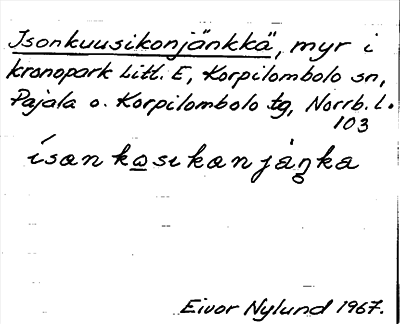 Isonkuusikonjänkkä, myr i
kronopark Litt. E, Korpilombolo sn,
Pajala o. Korpilombolo tg, Norrb. l.
103
ísan ko̲sikanjáŋka
Eivor Nylund 1967.